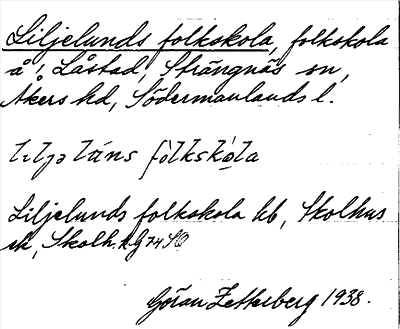 Liljelunds folkskola, folkskola
å! Låstad, Strängnäs sn,
Åkers hd, Södermanlands l.
lılȷa lúns fòlkskóla
Liljelunds folkskola hb, Skolhus
ek, Skolh.
Göran Zetterberg 1938.